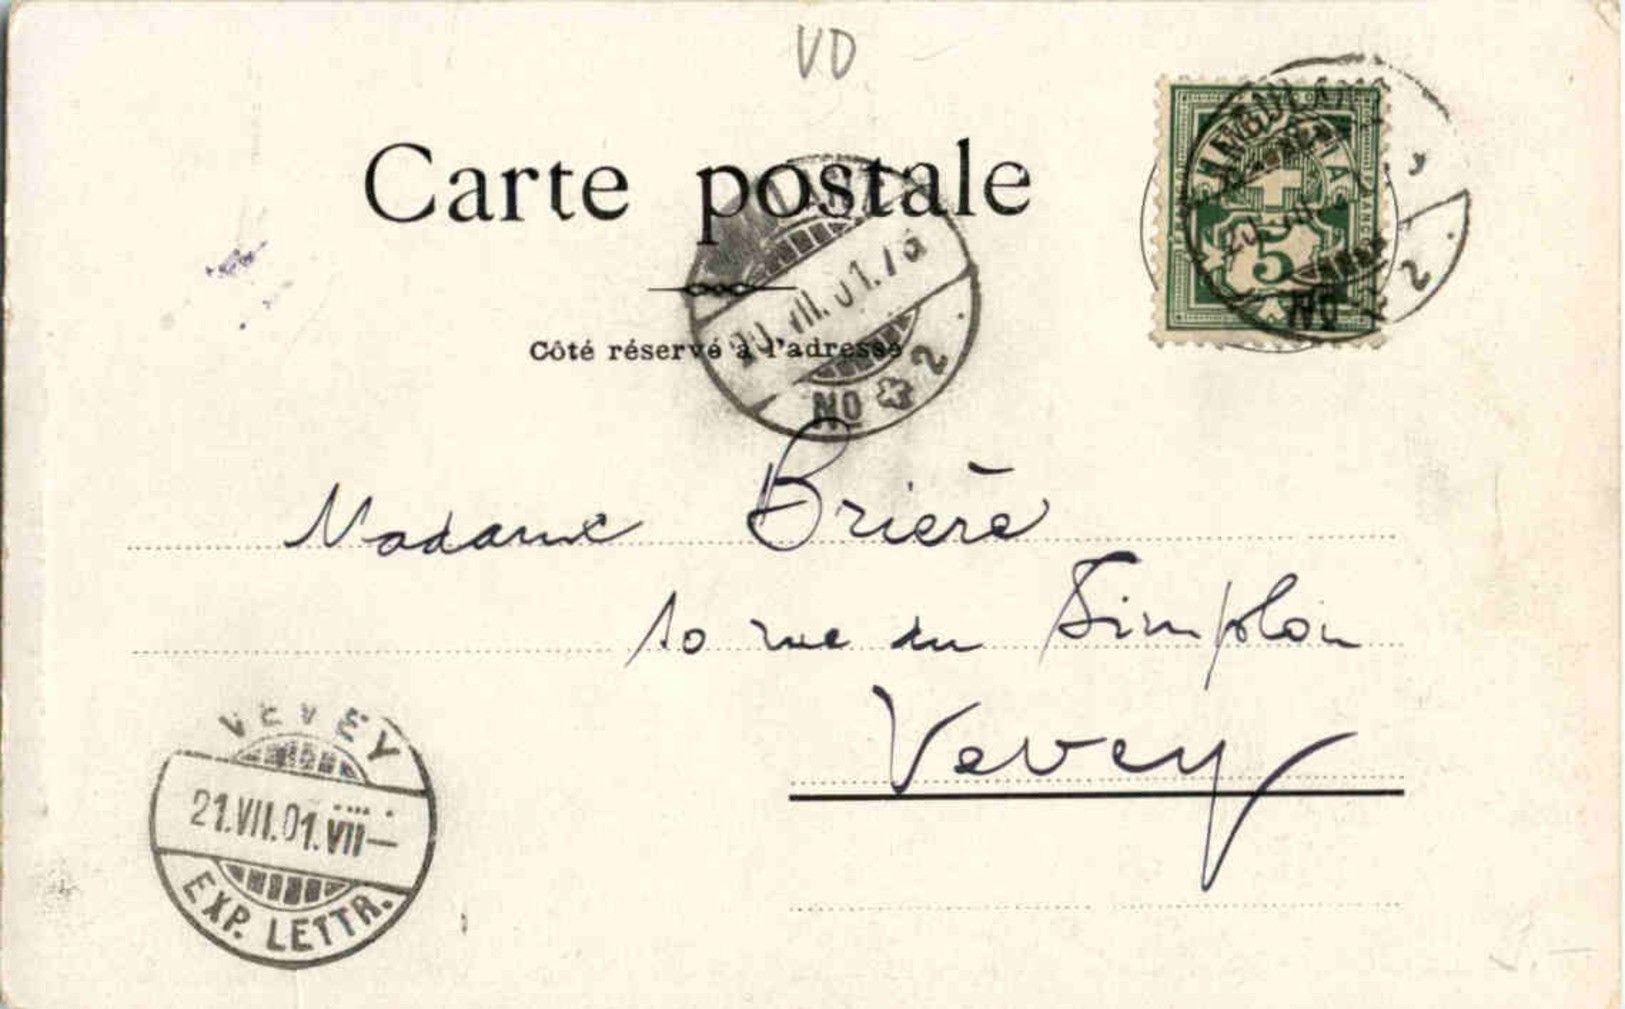 VD
Carte postale
Côté réservé à l'adresse
AMBULANT
5
No 2
20.VII.01.
No 2
Madame Brière
10 rue du Simplon
Vevey
VEVEY
21.VII.01.VII—
EXP. LETTR.